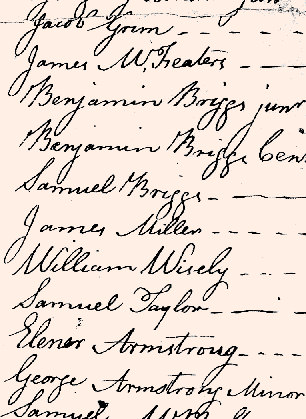 Jacob Grim
James McFeaters
Benjamin Briggs junr
Benjamin Briggs Cen
Samuel Briggs
James Miller
William Wisely
Samuel Taylor
Elener Armstroug
George Armstrong Minor
Samuel